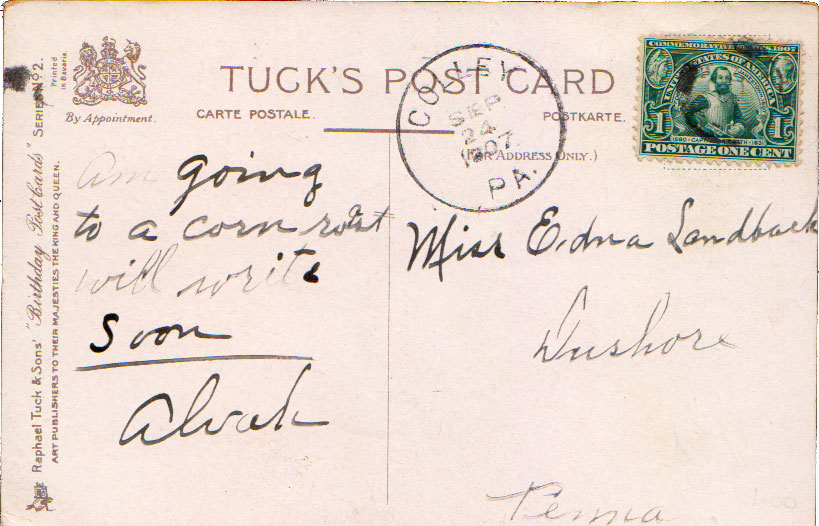 Raphael Tuck & Sons' "Birthday Post Cards" SERIES Nº 2.
ART PUBLISHERS TO THEIR MAJESTIES THE KING AND QUEEN.
Printed in Bavaria
By Appointment.
TUCK'S POST CARD
CARTE POSTALE.
POSTKARTE.
(FOR ADDRESS ONLY.)
COLLEY
SEP
24
1907
PA.
COMMEMORATIVE SERIES, 1907
UNITED STATES OF AMERICA
1580 CAPTAIN JOHN SMITH 1631
1 1
POSTAGE ONE CENT
Am going
to a corn roast
will write
soon
Alvah
Miss Edna Landback
Dushore
Penna